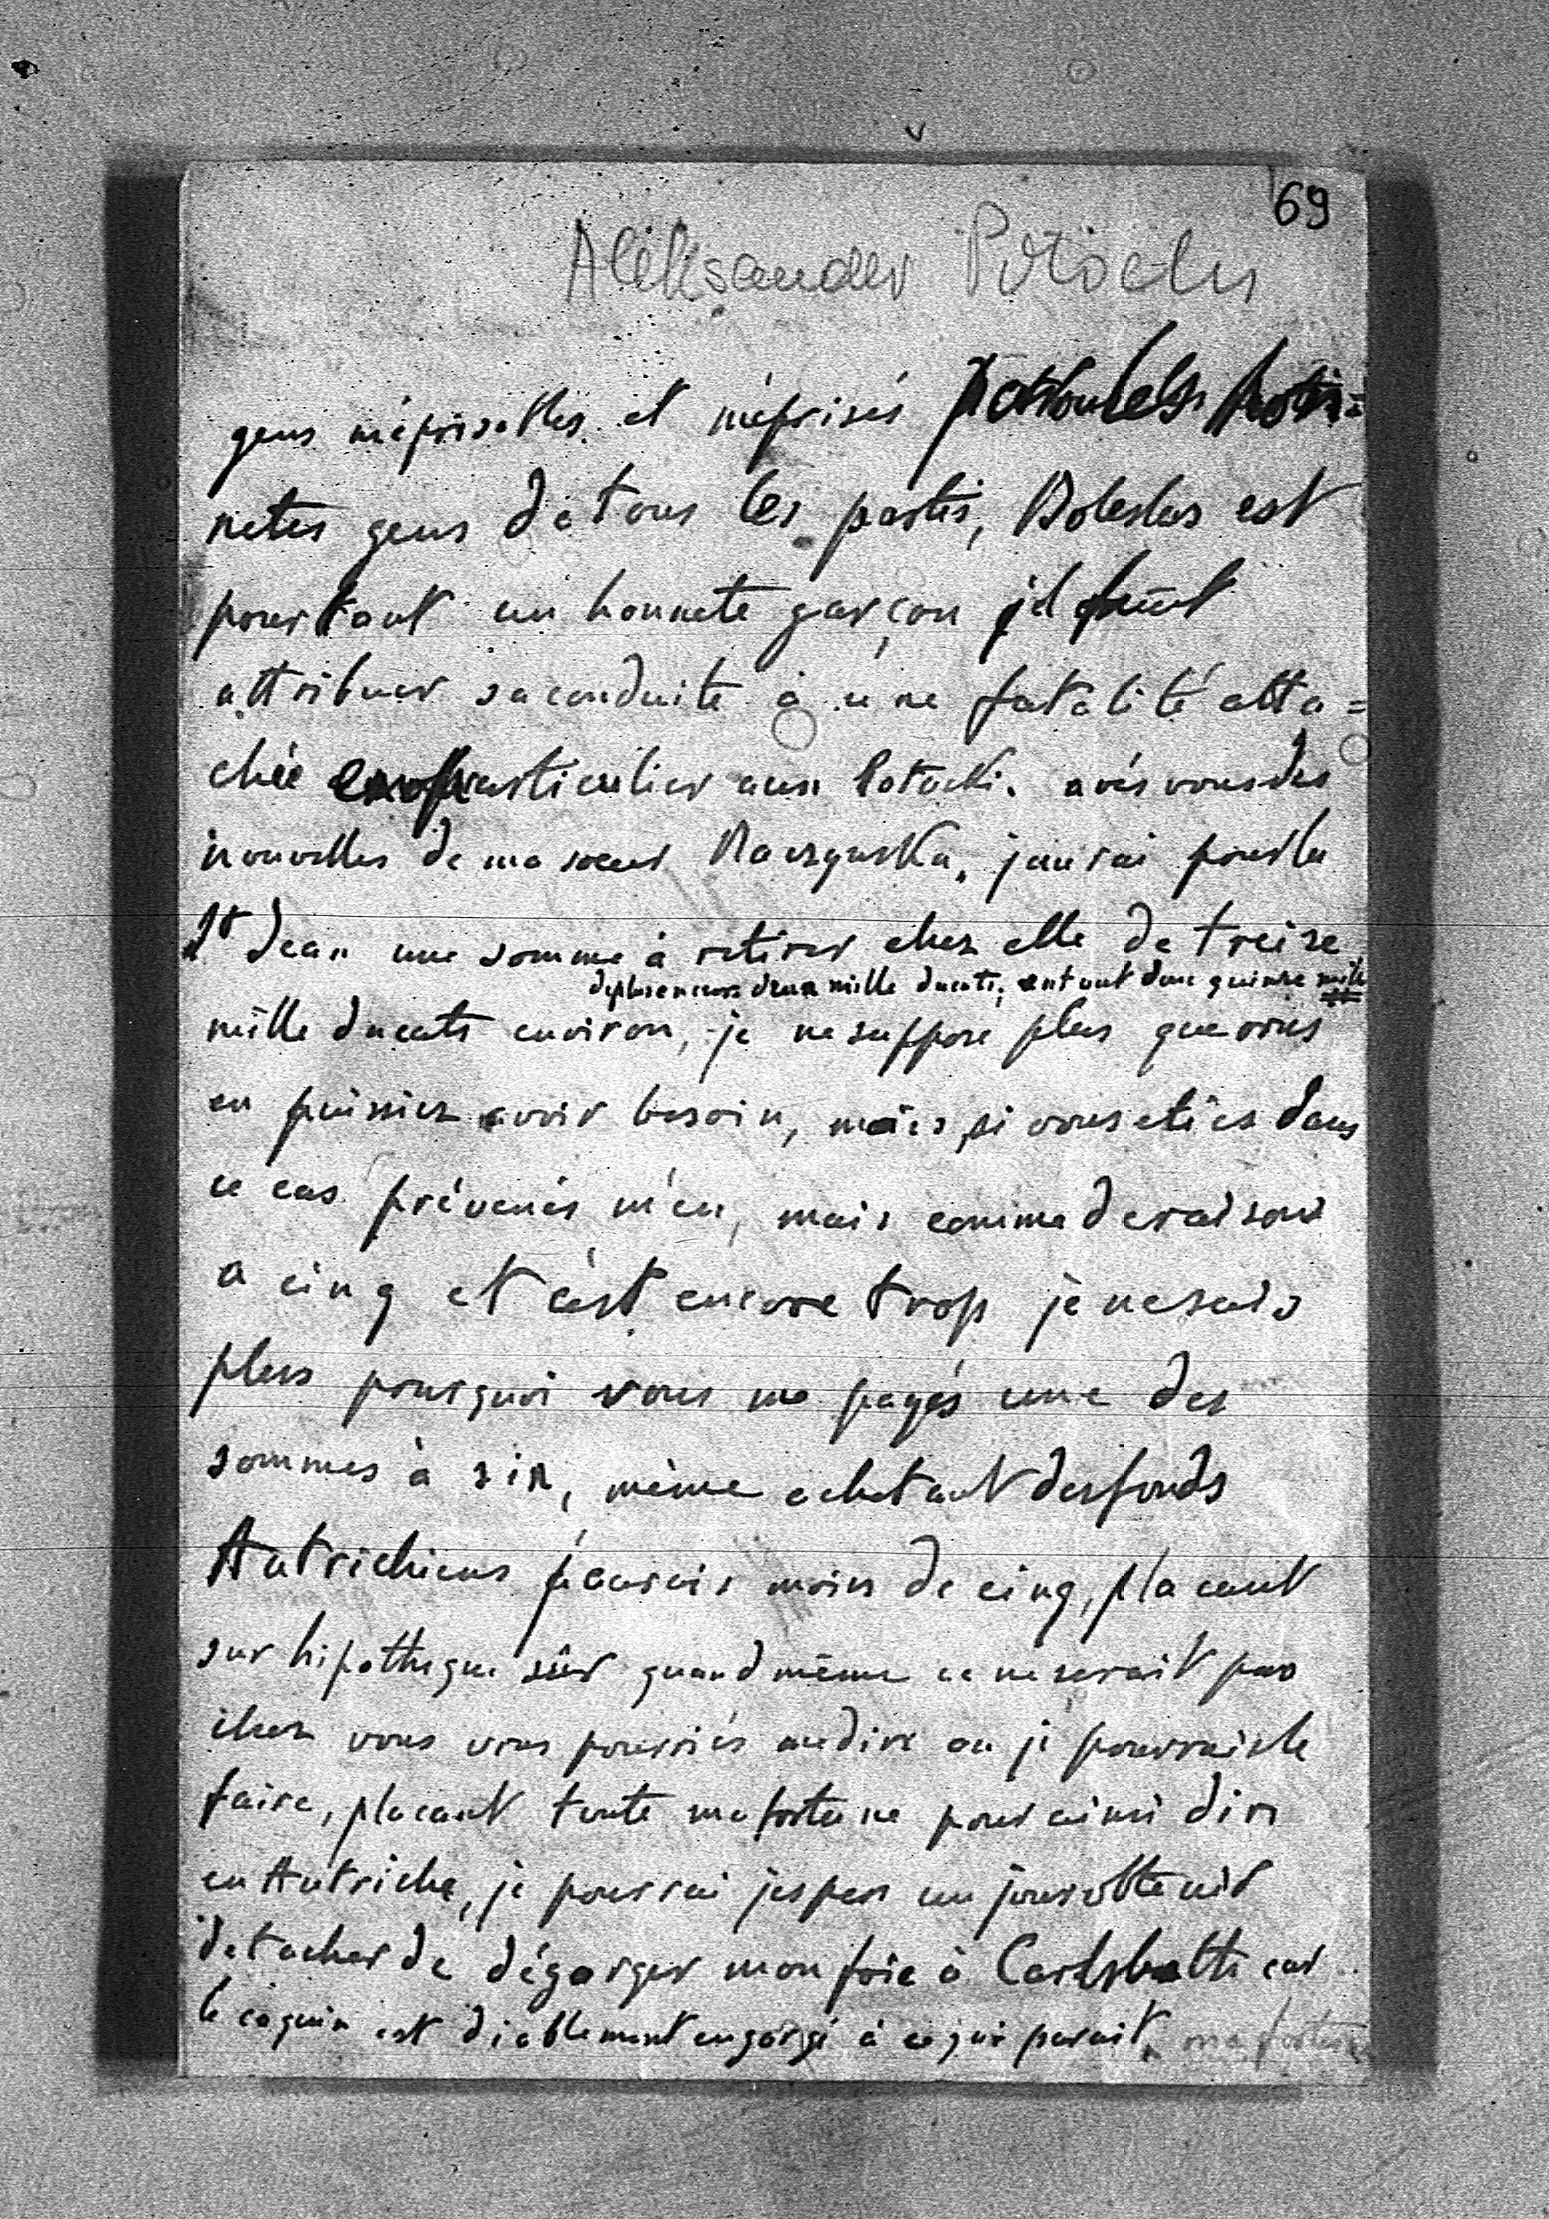 69
Aleksander Potocki
gens méprisables et méprisés par tous les hon=
netes gens de tous les partis, Boleslas est
pourtant un honnete garçon il faut
attribuer sa conduite à une fatalité atta=
chée en particulier aux Potocki. avés vous des
nouvelles de ma soeur Raczynska, jaurai pour la
St Jean une somme à retirer chez elle de treize
deplus encore deux mille ducats, en tout donc quinze mille
mille ducats environ, je ne suppose plus que vous
en puissiez avoir besoin, mais si vous etiés dans
ce cas prévenés m'en, mais comme de raison
a cinq et c'est encore trop je ne sais
plus pourquoi vous me payés une des
sommes à six, même achetant des fonds
Autrichiens j'aurais moins de cinq, placant
sur hipotheque sûr quand même ce ne serait pas
chez vous vous pourriés me dire ou je pourrais le
faire, placant toute ma fortune pour ainsi dire
en Autriche, je pourrai jespere un jour obtenir
de tacher de dégorger mon foie à Carlsbatt car
le coquin est diablement engorgé à ce qui parait. ma fortune